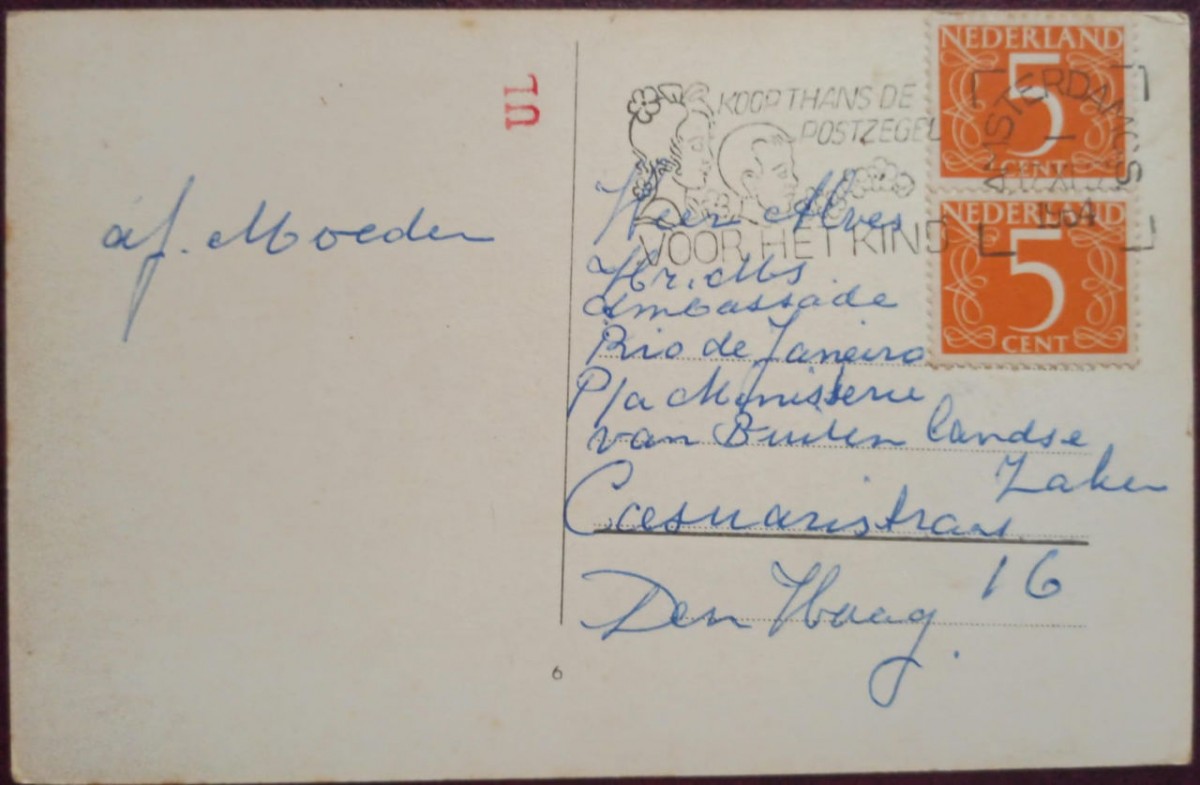 UL
KOOP THANS DE
POSTZEGEL
VOOR HET KIND
AMSTERDAM C.S.
1964
NEDERLAND
5
CENT
NEDERLAND
5
CENT
af. Moeder
Heer Alves
Hr. Ms
Ambassade
Rio de Janeiro
P/a Ministerie
van Buitenlandse
Zaken
Casuaristraat
16
Den Haag.
6